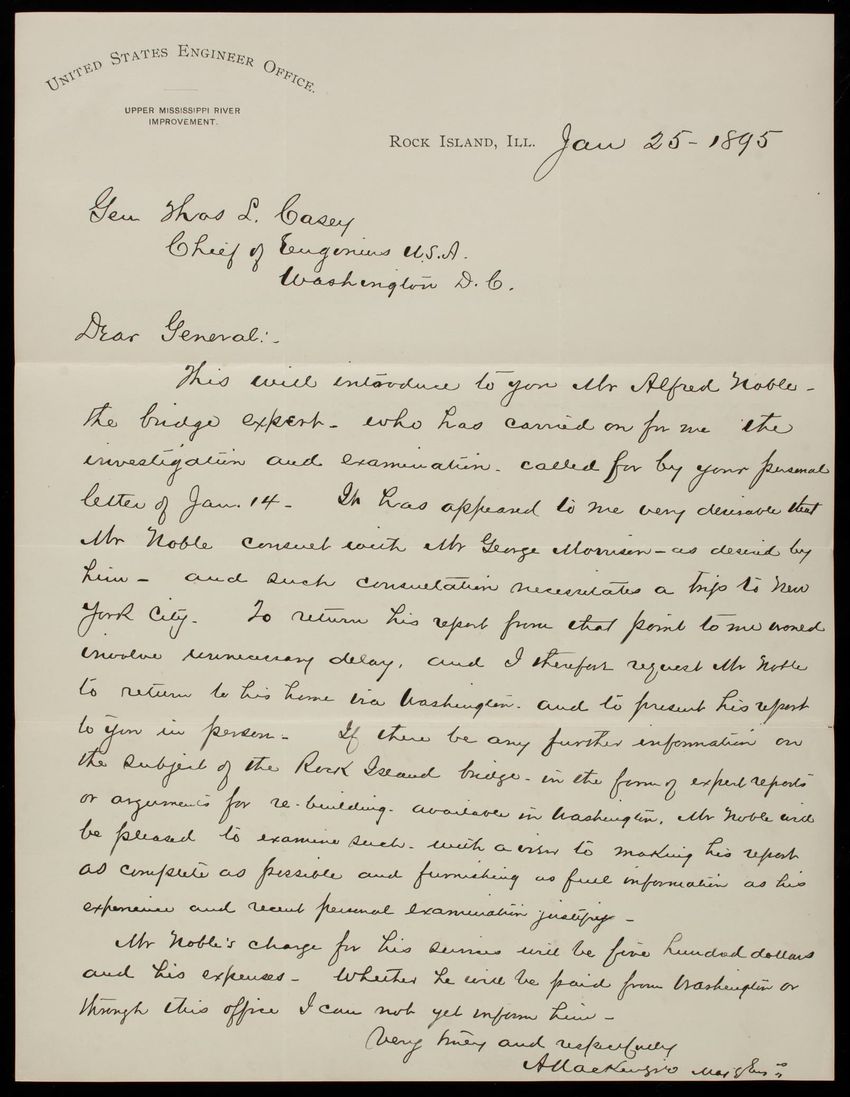 UNITED STATES ENGINEER OFFICE.
UPPER MISSISSIPPI RIVER
IMPROVEMENT.
ROCK ISLAND, ILL. Jan 25-1895
Gen Thos L. Casey
Chief of Engineers U.S.A.
Washington D.C.
Dear General:-
This will introduce to you Mr Alfred Noble-
the bridge expert- who has carried on for me the
investigation and examination- called for by your personal
letter of Jan. 14- It has appeared to me very desirable that
Mr Noble consult with Mr George Morrison- as desired by
him- and such consultation necessitates a trip to New
York City- To return his report from that point to me would
involve unnecessary delay, and I therefore request Mr Noble
to return to his home via Washington- and to present his report
to you in person- If there be any further information on
the subject of the Rock Island bridge- in the form of expert reports
or arguments for re-building- available in Washington, Mr Noble will
be pleased to examine such- with a view to making his report
as complete as possible and furnishing as full information as his
experience and recent personal examination justify-
Mr Noble's charge for his services will be five hundred dollars
and his expenses- Whether he will be paid from Washington or
through this office I can not yet inform him-
Very truly and respectfully
A Mackenzie Maj of Eng'rs